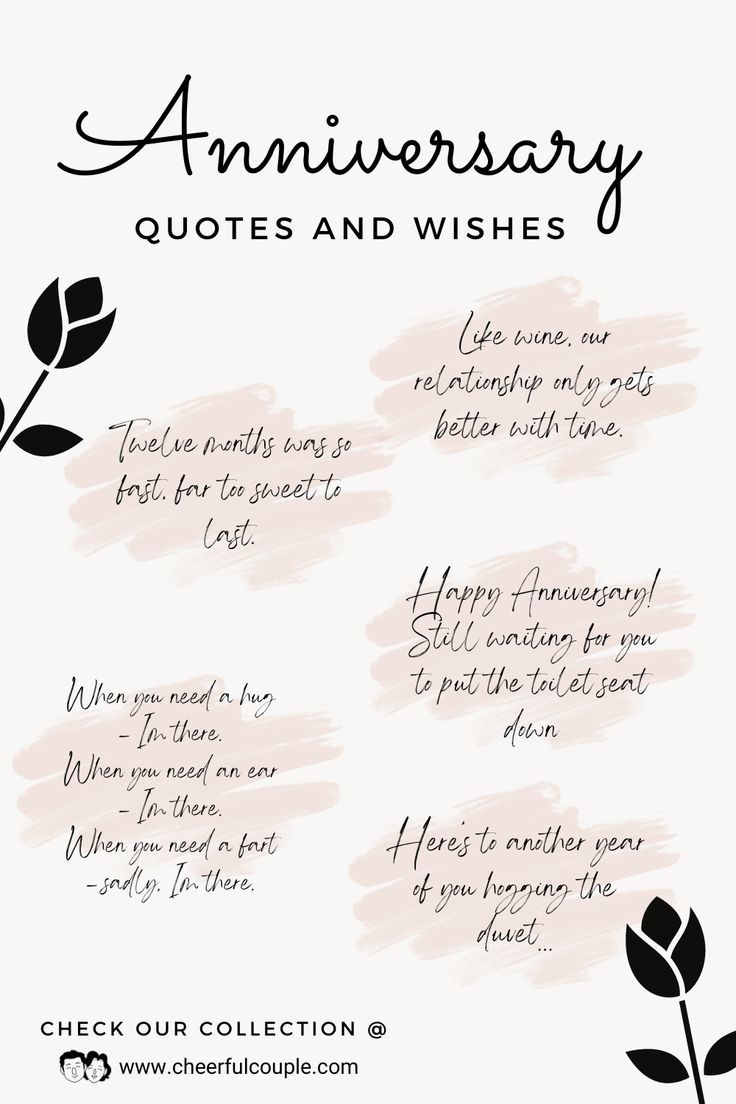 Anniversary
QUOTES AND WISHES
Like wine, our
relationship only gets
better with time.
Twelve months was so
fast, far too sweet to
last.
Happy Anniversary!
Still waiting for you
to put the toilet seat
down
When you need a hug
- I'm there.
When you need an ear
- I'm there.
When you need a fart
-sadly, I'm there.
Here's to another year
of you hogging the
duvet...
CHECK OUR COLLECTION @
www.cheerfulcouple.com